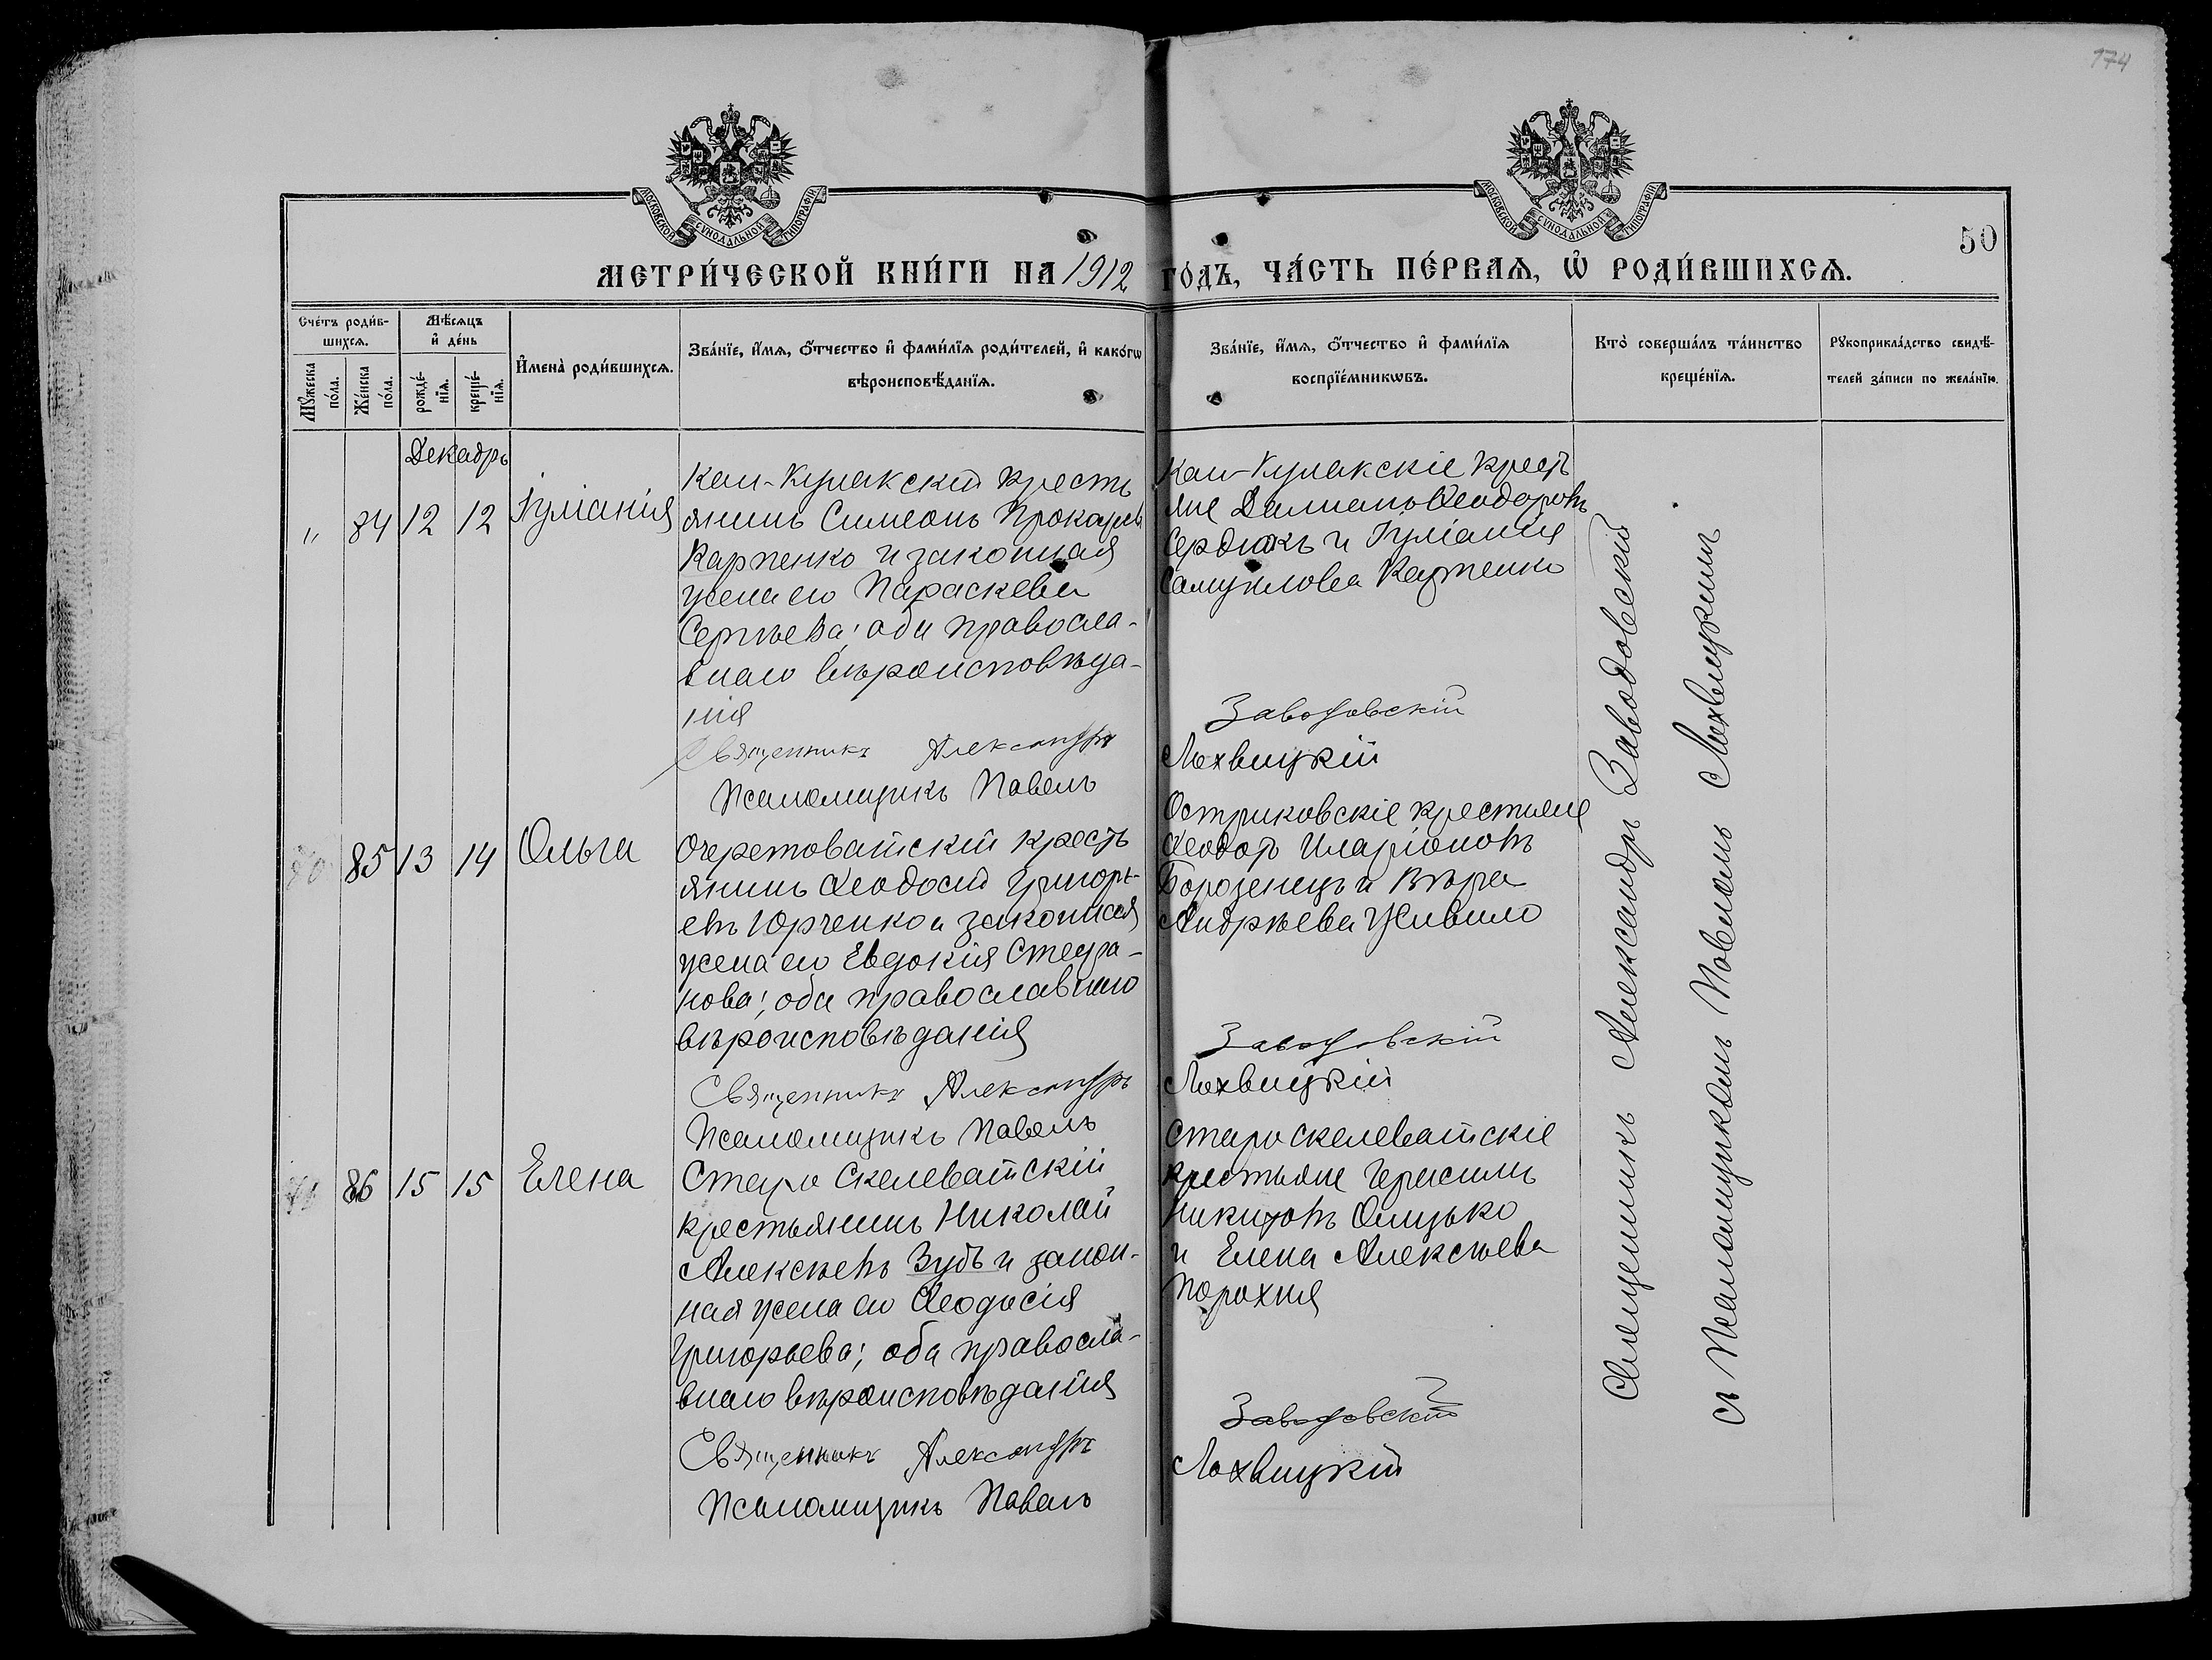 174
МОСКОВСКОЙ СѴНОДАЛЬНОЙ ТИПОГРАФІИ
МОСКОВСКОЙ СѴНОДАЛЬНОЙ ТИПОГРАФІИ
50
МЕТРИ́ЧЕСКОЙ КНИ́ГИ НА 1912 ГО́ДЪ, ЧА́СТЬ ПЕ́РВАѦ, Ѡ҆ РОДИ́ВШИХСѦ.
Сче́тъ роди́в-
шихсѧ.
Мѣ́сѧцъ
и҆ де́нь
Мꙋ́жеска
по́ла.
Же́нска
по́ла.
рожде́-
нїѧ.
креще́-
нїѧ.
И҆мена̀ роди́вшихсѧ.
Зва́нїе, и҆́мѧ, ѻ҆́тчество и҆ фами́лїѧ роди́телей, и҆ како́гѡ
вѣроисповѣ́данїѧ.
Зва́нїе, и҆́мѧ, ѻ҆́тчество и҆ фами́лїѧ
воспрїе́мникѡвъ.
Кто̀ соверша́лъ та́инство
креще́нїѧ.
Рꙋкоприкла́дство свидѣ́-
телей за́писи по жела́нїю.
Декабрь
" 84 12 12 Іуліанія
Кам-Кулакскій кресть
янинъ Симеонъ Прокопіевъ
Карпенко и законная
жена его Параскева
Сергѣева; оба правосла-
внаго вѣроисповѣда-
нія
Священникъ Александръ
Псаломщикъ Павелъ
Кам-Кулакскіе кресть
яне Даміанъ Ѳеодоровъ
Сердюкъ и Іуліанія
Самуилова Карпенко
Заводовскій
Лохвицкій
85 13 14 Ольга
Очеретоватскій кресть
янинъ Ѳеодосій Григорь-
евъ Юрченко и законная
жена его Евдокія Стефа-
нова; оба православнаго
вѣроисповѣданія
Священникъ Александръ
Псаломщикъ Павелъ
Остриковскіе крестьяне
Ѳеодоръ Иларіоновъ
Борозенецъ и Вѣра
Андреева Живило
Заводовскій
Лохвицкій
86 15 15 Елена
Старо Скелеватскій
крестьянинъ Николай
Алексѣевъ Зубъ и закон-
ная жена его Ѳеодосія
Григорьева; оба правосла-
внаго вѣроисповѣданія
Священникъ Александръ
Псаломщикъ Павелъ
Старо Скелеватскіе
крестьяне Герасимъ
Никитовъ Онищько
и Елена Алексѣева
Порохня
Заводовскій
Лохвицкій
Священникъ Александръ Заводовскій
съ Псаломщикомъ Павломъ Лохвицкимъ